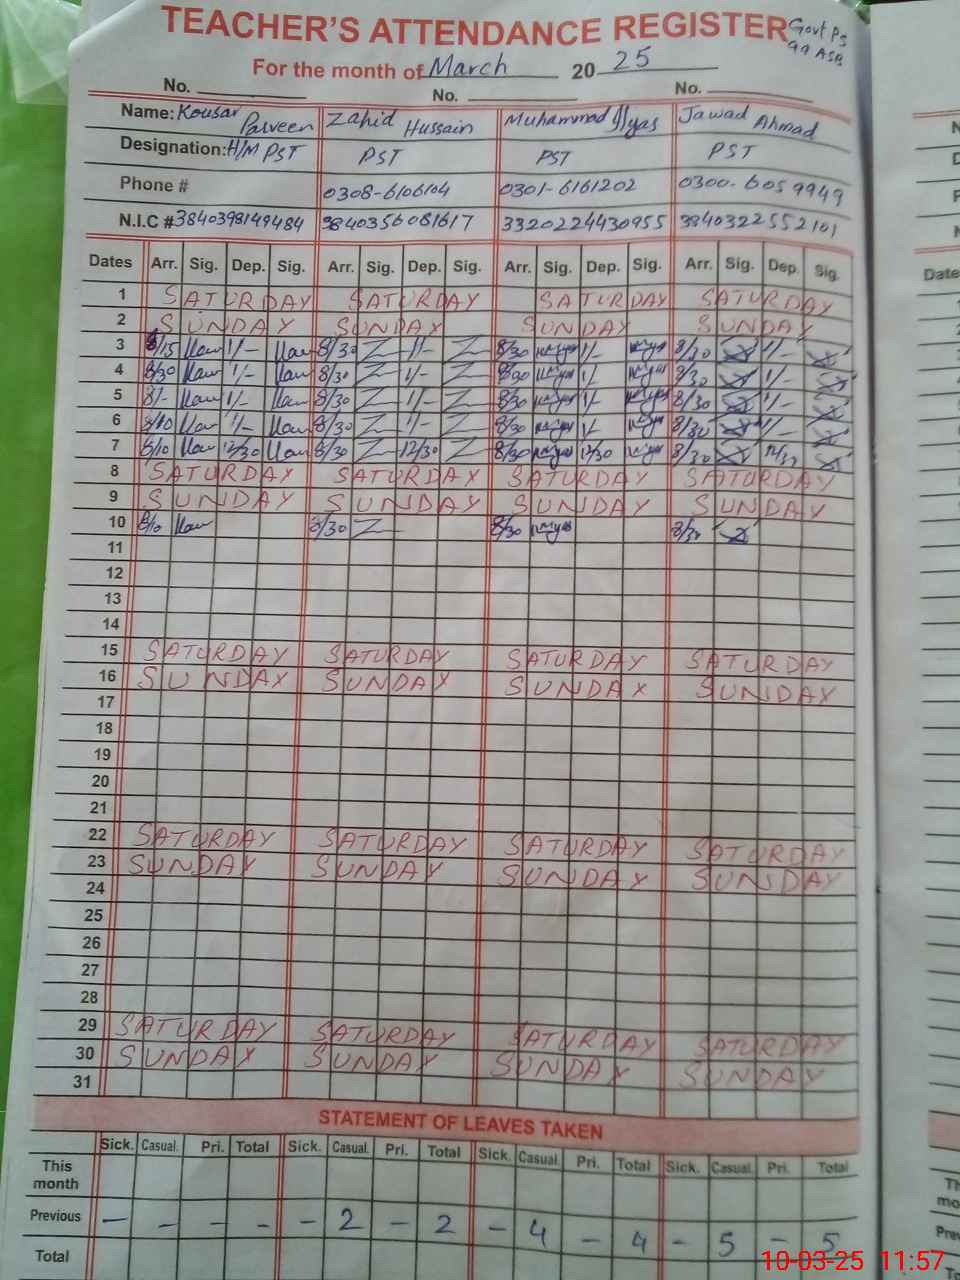 TEACHER'S ATTENDANCE REGISTER Govt PS
99 ASB
For the month of March 20 25
No. No. No.
Name: Kousar Parveen Zahid Hussain Muhammad Ilyas Jawad Ahmad
Designation: H/M PST PST PST PST
Phone # 0308-6106104 0301-6161202 0300-6059949
N.I.C # 3840398149484 3840356081617 3320224430955 3840322552101
Dates Arr. Sig. Dep. Sig. Arr. Sig. Dep. Sig. Arr. Sig. Dep. Sig. Arr. Sig. Dep. Sig.
1 SATURDAY SATURDAY SATURDAY SATURDAY
2 SUNDAY SUNDAY SUNDAY SUNDAY
3 8/15 1/- 8/30 1/- 8/30 1/- 8/30 1/-
4 8/30 1/- 8/30 1/- 8/30 1/ 8/30 1/-
5 8/- 1/- 8/30 1/- 8/30 1/ 8/30 1/-
6 8/10 1/- 8/30 1/- 8/30 1/ 8/30 1/-
7 8/10 12/30 8/30 12/30 8/30 12/30 8/30 12/30
8 SATURDAY SATURDAY SATURDAY SATURDAY
9 SUNDAY SUNDAY SUNDAY SUNDAY
10 8/10 8/30 8/30 8/30
11
12
13
14
15 SATURDAY SATURDAY SATURDAY SATURDAY
16 SUNDAY SUNDAY SUNDAY SUNDAY
17
18
19
20
21
22 SATURDAY SATURDAY SATURDAY SATURDAY
23 SUNDAY SUNDAY SUNDAY SUNDAY
24
25
26
27
28
29 SATURDAY SATURDAY SATURDAY SATURDAY
30 SUNDAY SUNDAY SUNDAY SUNDAY
31
STATEMENT OF LEAVES TAKEN
Sick. Casual. Pri. Total Sick. Casual. Pri. Total Sick. Casual. Pri. Total Sick. Casual. Pri. Total
This month
Previous - - - - - 2 - 2 - 4 - 4 - 5 - 5
Total
10-03-25 11:57